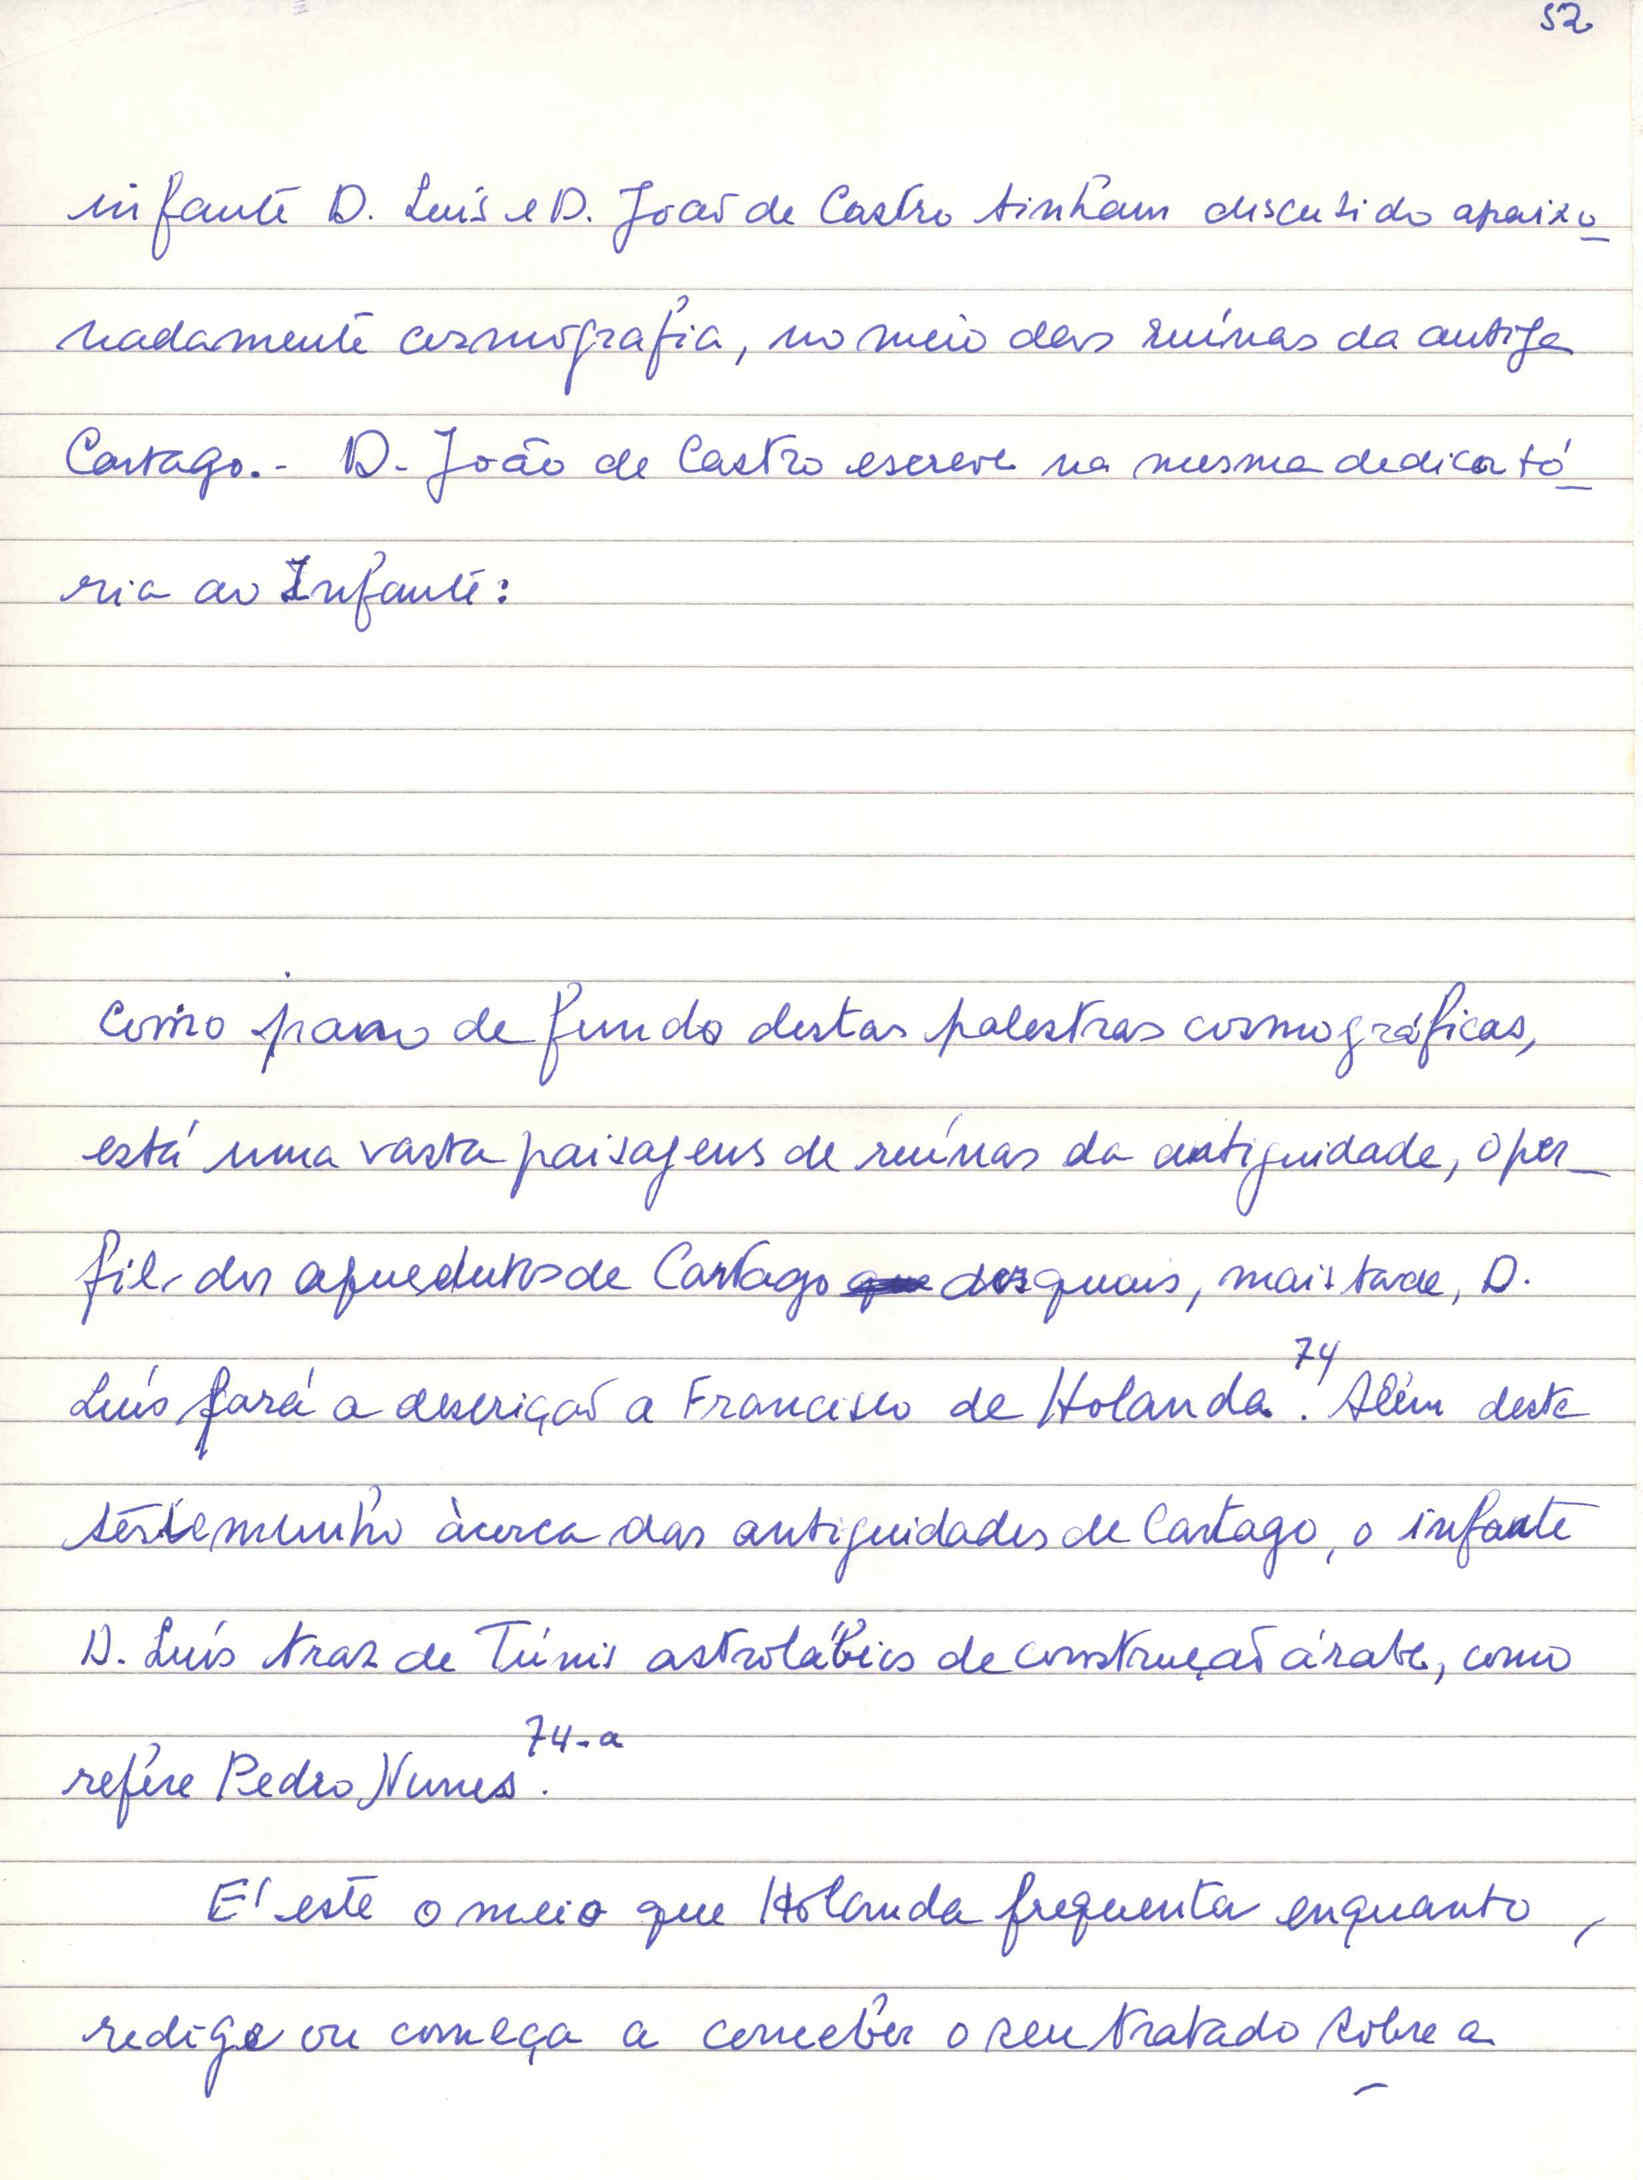 52
infante D. Luís e D. João de Castro tinham discutido apaixo
nadamente cosmografia, no meio das ruínas da antiga
Cartago.- D. João de Castro escreve na mesma dedicató
ria ao Infante:
Como pano de fundo destas palestras cosmográficas,
está uma vasta paisagens de ruínas da antiguidade, o per-
fil dos aquedutos de Cartago que dos quais, mais tarde, D.
Luís fará a descrição a Francisco de Holanda.74 Além deste
testemunho àcerca das antiguidades de Cartago, o infante
D. Luís traz de Túnis astrolábios de construção árabe, como
refere Pedro Nunes74-a.
É este o meio que Holanda frequenta enquanto,
redige ou começa a conceber o seu tratado sobre a